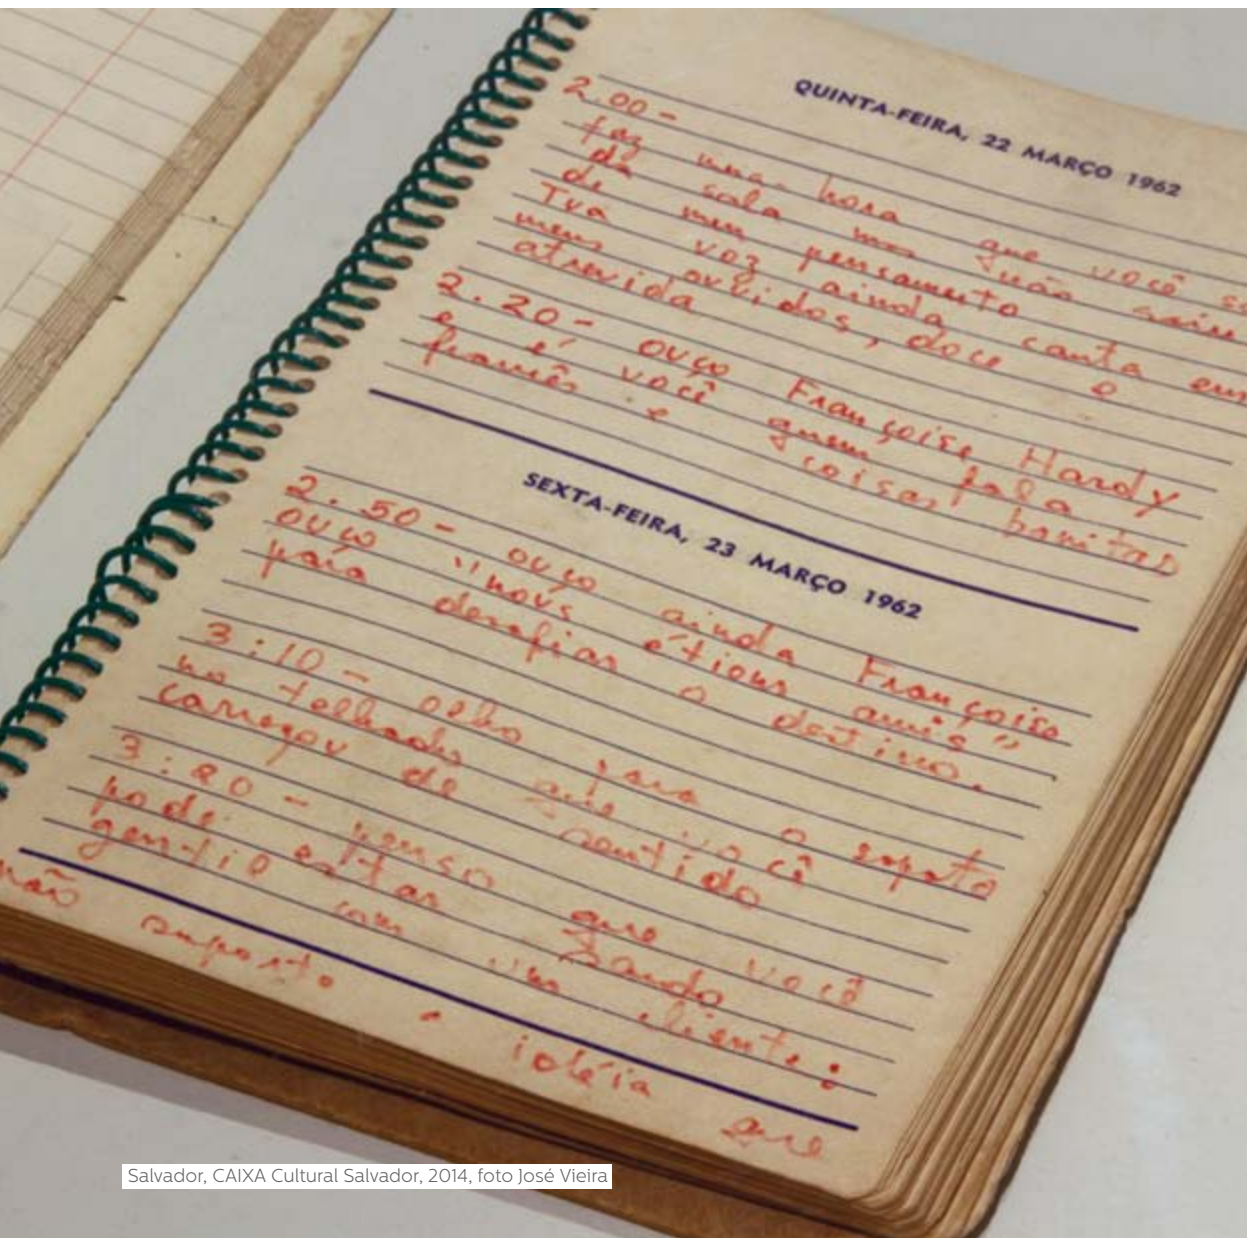 QUINTA-FEIRA, 22 MARÇO 1962
2.00 -
faz uma hora que você sa
da sala mas não saiu
de meu pensamento
Tua voz ainda canta em
meus ouvidos, doce e
atrevida
2.20 - ouço Françoise Hardy
e é você quem fala
francês e coisas bonitas
SEXTA-FEIRA, 23 MARÇO 1962
2.50 - ouço ainda Françoise
ouço "nous étions amis"
para desafiar o destino.
3:10 - olho para o espeto
no telhado que você
carregou de sentido
3:20 - penso que você
pode estar sendo
gentil com um cliente:
não suporto a idéia que
Salvador, CAIXA Cultural Salvador, 2014, foto José Vieira